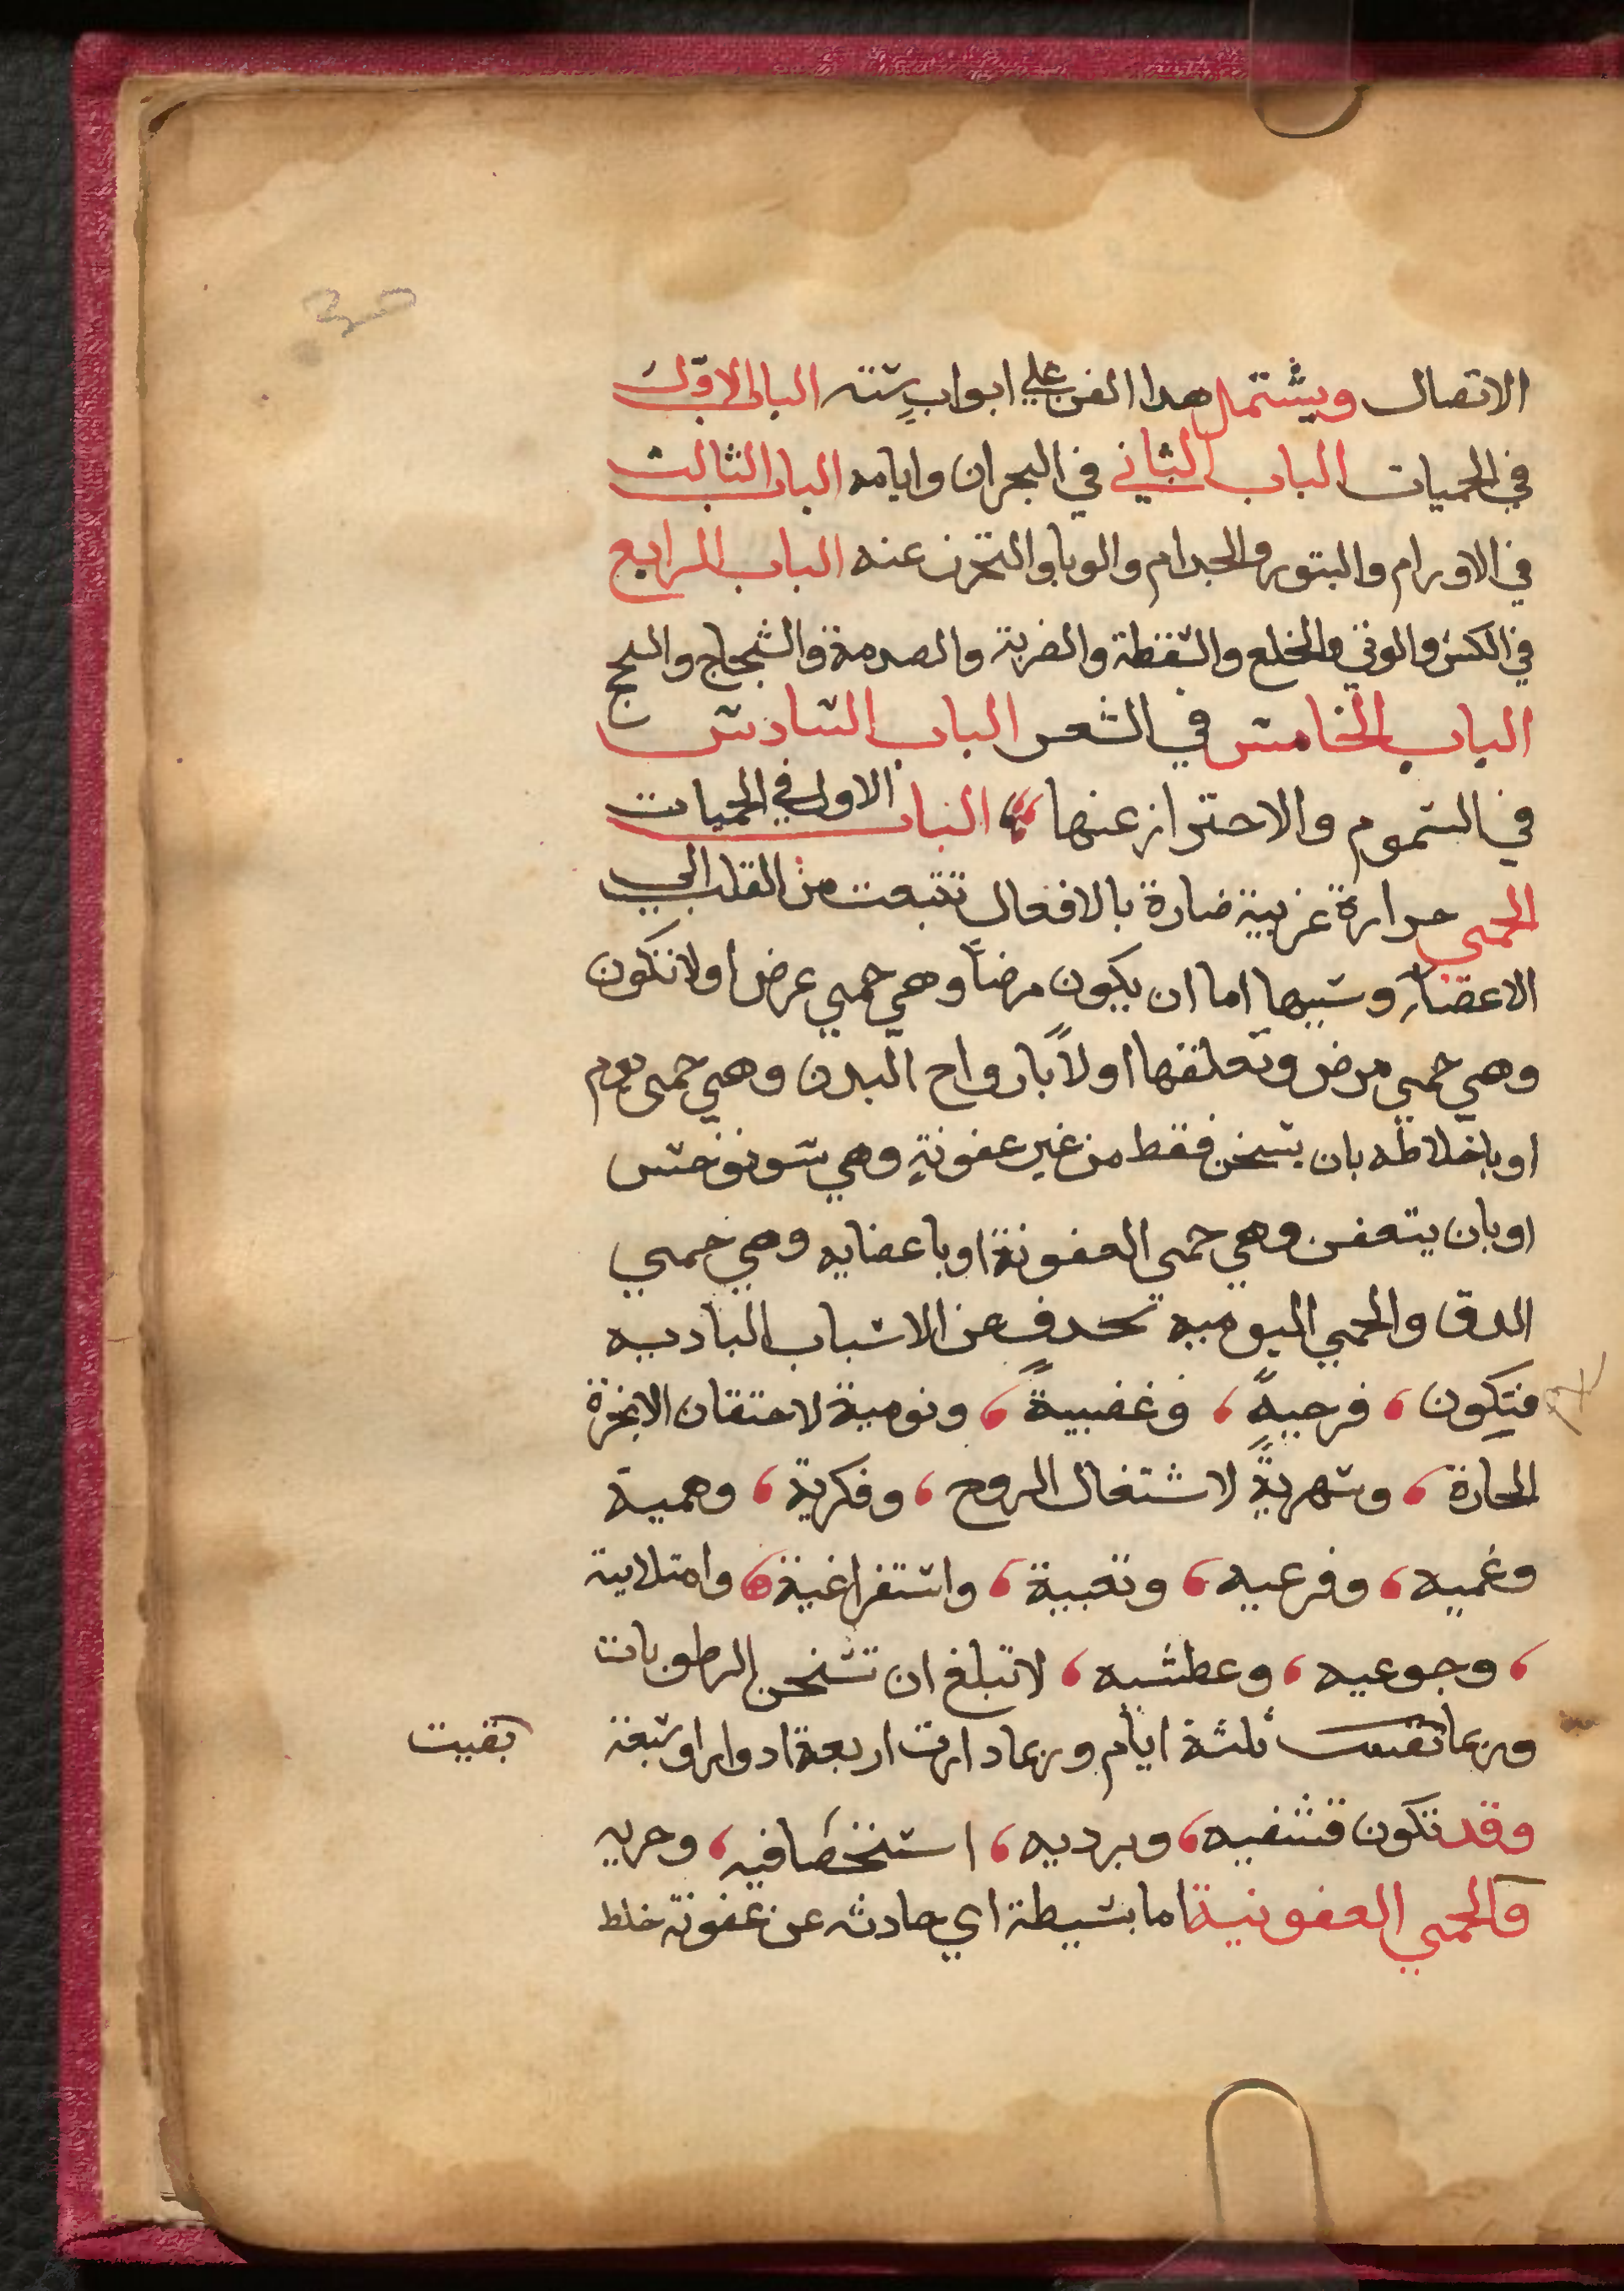 الاتصال ويشتمل هدا الفن علي ابواب ستة الباب الاول
في الحميات الباب الثاني في البحران وايامه الباب الثالث
في الاورام والبثور والجدام والوبا والتحرز عنه الباب الرابع
في الكسر والوثي والخلع والسقطة والضربة والصدمة والشجاج والسحج
الباب الخامس في الشعر الباب السادس
في السموم والاحتراز عنها الباب الاول في الحميات
الحمي حرارة غريبة ضارة بالافعال تنبعت من القلب الي
الاعضاء وسببها اما ان يكون مرضاً وهي حمي عرض اولا تكون
وهي حمي مرض وتعلقها اولاً بارواح البدن وهي حمي يوم
او باخلاطه بان يسخن فقط من غير عفونةٍ وهي سونوخس
او بان يتعفن وهي حمي العفونة او باعضايه وهي حمي
الدق والحمي اليوميه تحدث عن الاسباب الباديه
فتكون ، فرحيةً ، وغضبيةً ، ونومية لاحتقان الابخرة
الحارة ، وسهريةً لاشتغال الروح ، وفكرية ، وهمية
وغميه ، وفزعيه ، وتعبية ، واستفراغية ، وامتلاية
، وجوعيه ، وعطشيه ، لا تبلغ ان تسخن الرطوبات
وربما بقيت ثلثة ايام وربما دارت اربعة ادوار او سبعة
بقيت
وقد تكون قشفيه ، وبرديه ، استحصافيه ، وحريه
والحمي العفونية اما بسيطة اي حادثه عن عفونة خلط